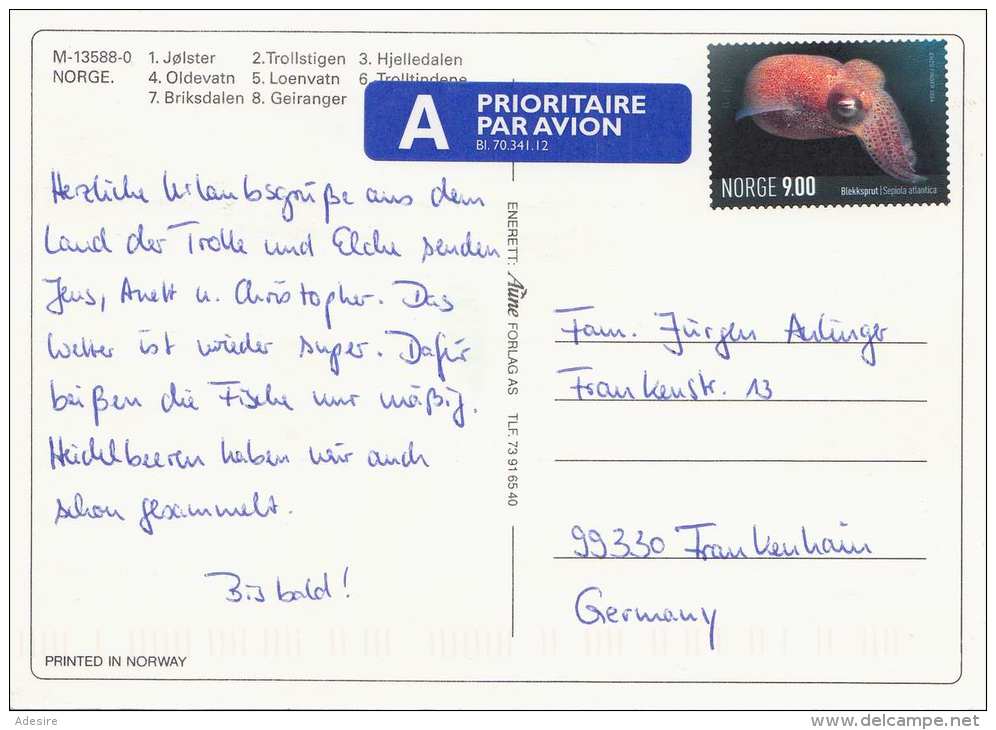 M-13588-0 1. Jølster 2.Trollstigen 3. Hjelledalen
NORGE. 4. Oldevatn 5. Loenvatn 6. Trolltindene
7. Briksdalen 8. Geiranger
A PRIORITAIRE
PAR AVION
Bl. 70.341.12
NORGE 9.00
Blekksprut | Sepiola atlantica
Herzliche Urlaubsgrüße aus dem
Land der Trolle und Elche senden
Jens, Anett u. Christopher. Das
Wetter ist wieder super. Dafür
beißen die Fische nur mäßig.
Heidelbeeren haben wir auch
schon gesammelt.
Bis bald!
ENERETT: Aune FORLAG AS TLF. 73 91 65 40
Fam. Jürgen
Frankenstr. 13
99330 Frankenhain
Germany
PRINTED IN NORWAY
Adesire
delcampe.net